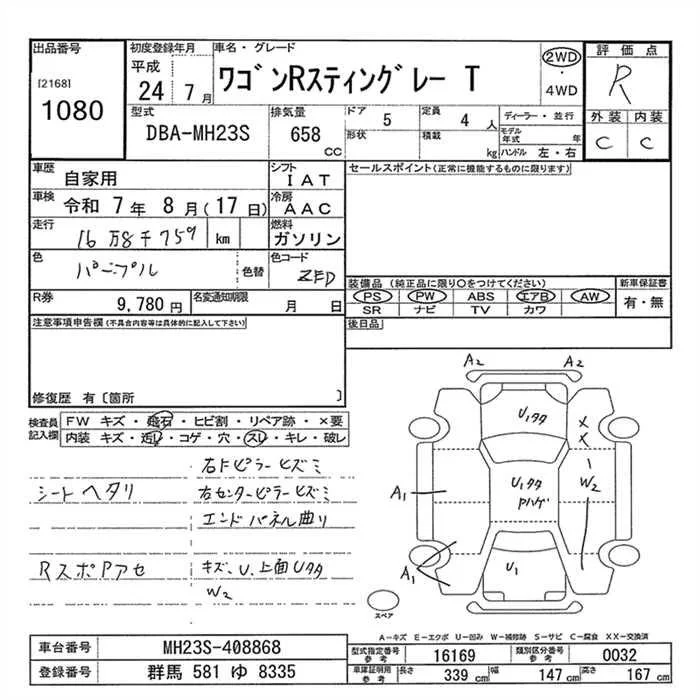 出品番号
[2168]
1080
初度登録年月
平成
24 7月
車名・グレード
ワゴンRスティングレー T
2WD
・
4WD
評価点
R
外装 内装
C C
型式
DBA-MH23S
排気量
658
CC
ドア 5
形状
定員 4 人
積載 kg
ディーラー・並行
モデル年式 年
ハンドル 左・右
車歴
自家用
シフト
IAT
車検
令和 7年 8月(17日)
冷房
AAC
走行
16万8千759 km
燃料
ガソリン
色
パープル
色替
色コード
ZFD
R券
9,780円
名変通知期限
月 日
セールスポイント(正常に機能するものに限ります)
装備品(純正品に限り○をつけてください)
PS PW ABS エアB AW
SR ナビ TV カワ
新車保証書
有・無
後日品
注意事項申告欄(不具合内容等は具体的に記入して下さい)
修復歴 有〔箇所 〕
検査員
記入欄
FW キズ・飛石・ヒビ割・リペア跡・×要
内装 キズ・汚レ・コゲ・穴・スレ・キレ・破レ
右Fピラーヒズミ
シートヘタリ 右センターピラーヒズミ
エンドパネル曲り
RスポPアセ キズ、U、上面Uタタ
W2
A2 A2
Uタタ
X
X
W2
A1
Uタタ
Pハゲ
A1
U1
スペア
A-キズ E-エクボ U-凹み W-補修跡 S-サビ C-腐食 XX-交換済
車台番号 MH23S-408868
登録番号 群馬 581 ゆ 8335
型式指定番号
参考
16169
類別区分番号
参考
0032
車庫証明用
参考
長さ 339 cm 幅 147 cm 高さ 167 cm